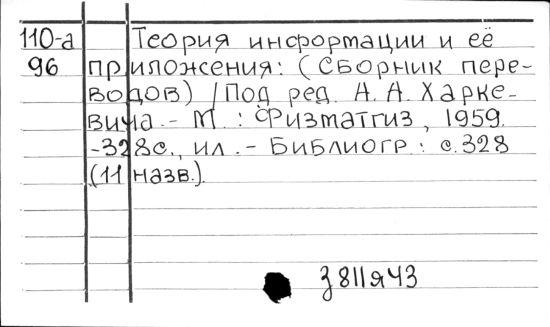 110-а Теория информации и её
96 приложения: (Сборник пере-
водов) / Под ред. А. А. Харке-
вича. - М. : Физматгиз, 1959.
-328с., ил. - Библиогр : с.328
(11 назв.).
З 811я43